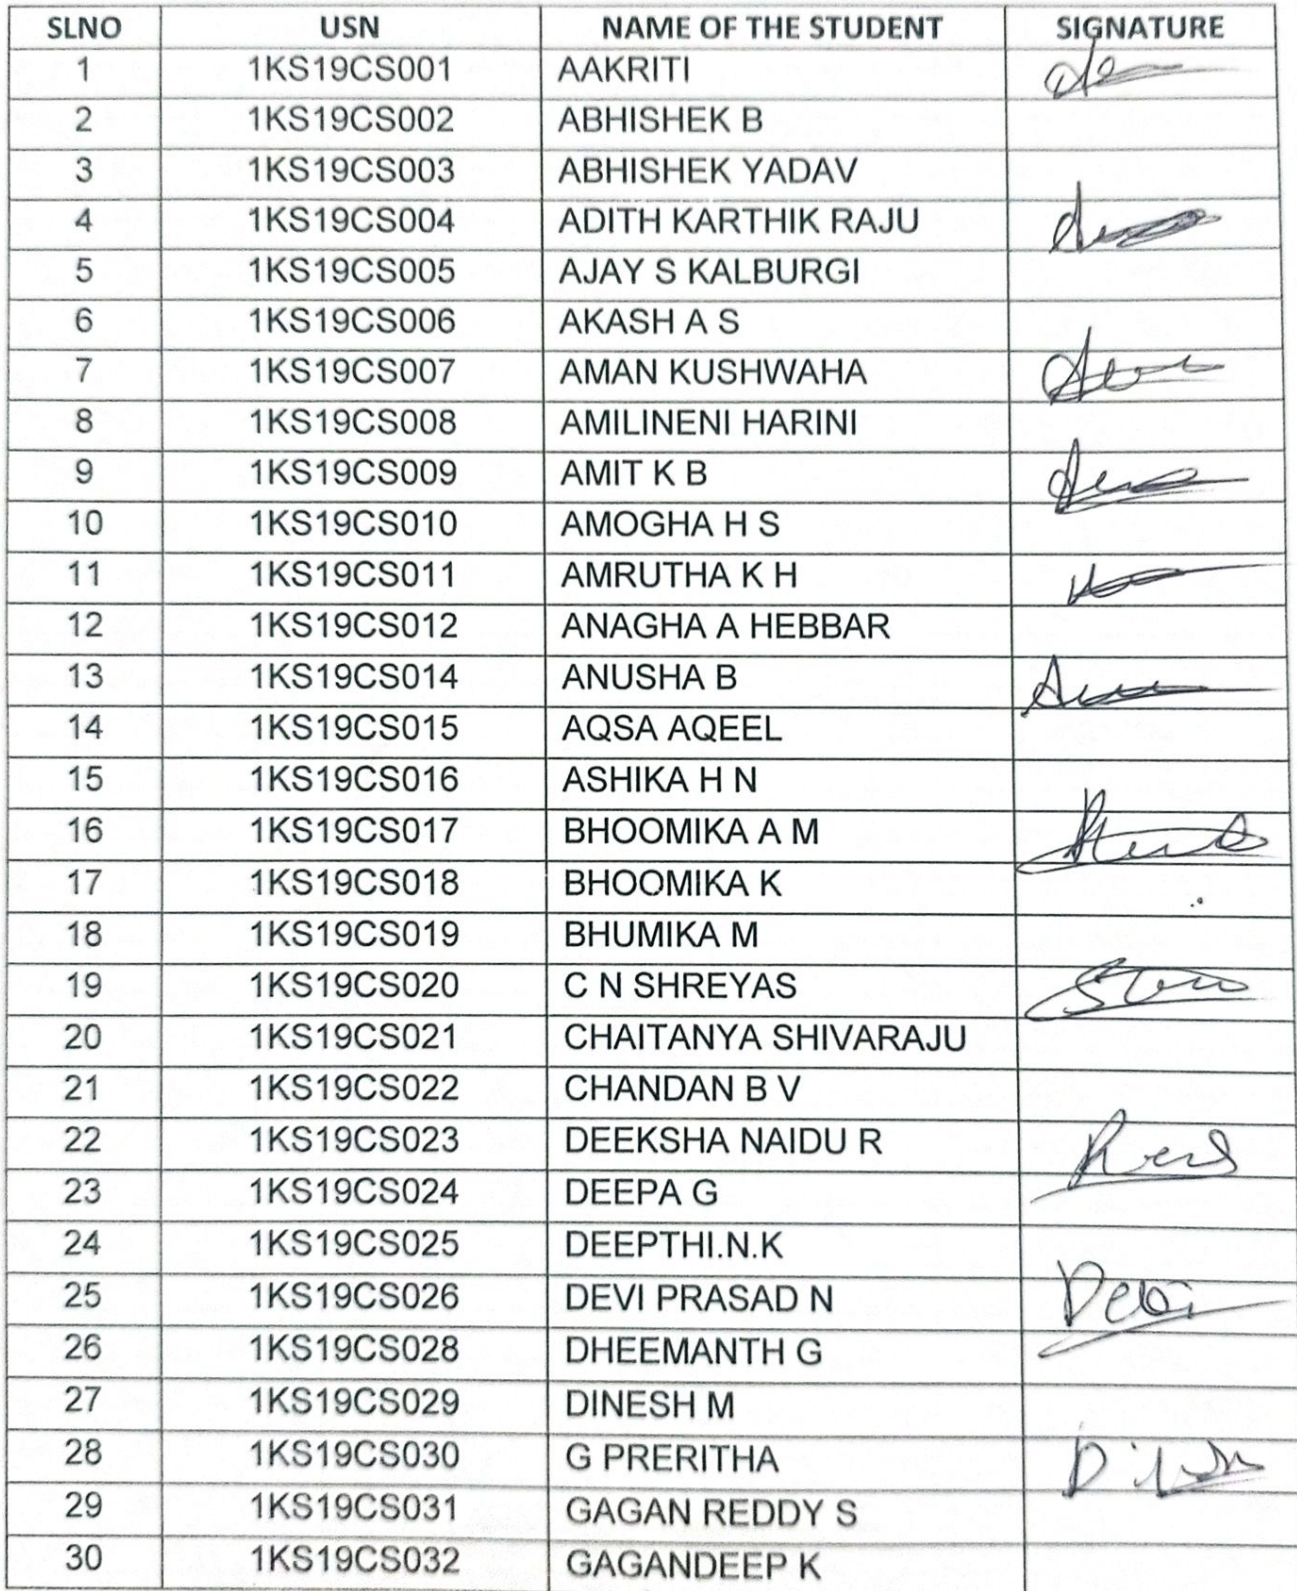 SLNO USN NAME OF THE STUDENT SIGNATURE
1 1KS19CS001 AAKRITI
2 1KS19CS002 ABHISHEK B
3 1KS19CS003 ABHISHEK YADAV
4 1KS19CS004 ADITH KARTHIK RAJU
5 1KS19CS005 AJAY S KALBURGI
6 1KS19CS006 AKASH A S
7 1KS19CS007 AMAN KUSHWAHA
8 1KS19CS008 AMILINENI HARINI
9 1KS19CS009 AMIT K B
10 1KS19CS010 AMOGHA H S
11 1KS19CS011 AMRUTHA K H
12 1KS19CS012 ANAGHA A HEBBAR
13 1KS19CS014 ANUSHA B
14 1KS19CS015 AQSA AQEEL
15 1KS19CS016 ASHIKA H N
16 1KS19CS017 BHOOMIKA A M
17 1KS19CS018 BHOOMIKA K
18 1KS19CS019 BHUMIKA M
19 1KS19CS020 C N SHREYAS
20 1KS19CS021 CHAITANYA SHIVARAJU
21 1KS19CS022 CHANDAN B V
22 1KS19CS023 DEEKSHA NAIDU R
23 1KS19CS024 DEEPA G
24 1KS19CS025 DEEPTHI.N.K
25 1KS19CS026 DEVI PRASAD N Devi
26 1KS19CS028 DHEEMANTH G
27 1KS19CS029 DINESH M
28 1KS19CS030 G PRERITHA
29 1KS19CS031 GAGAN REDDY S
30 1KS19CS032 GAGANDEEP K